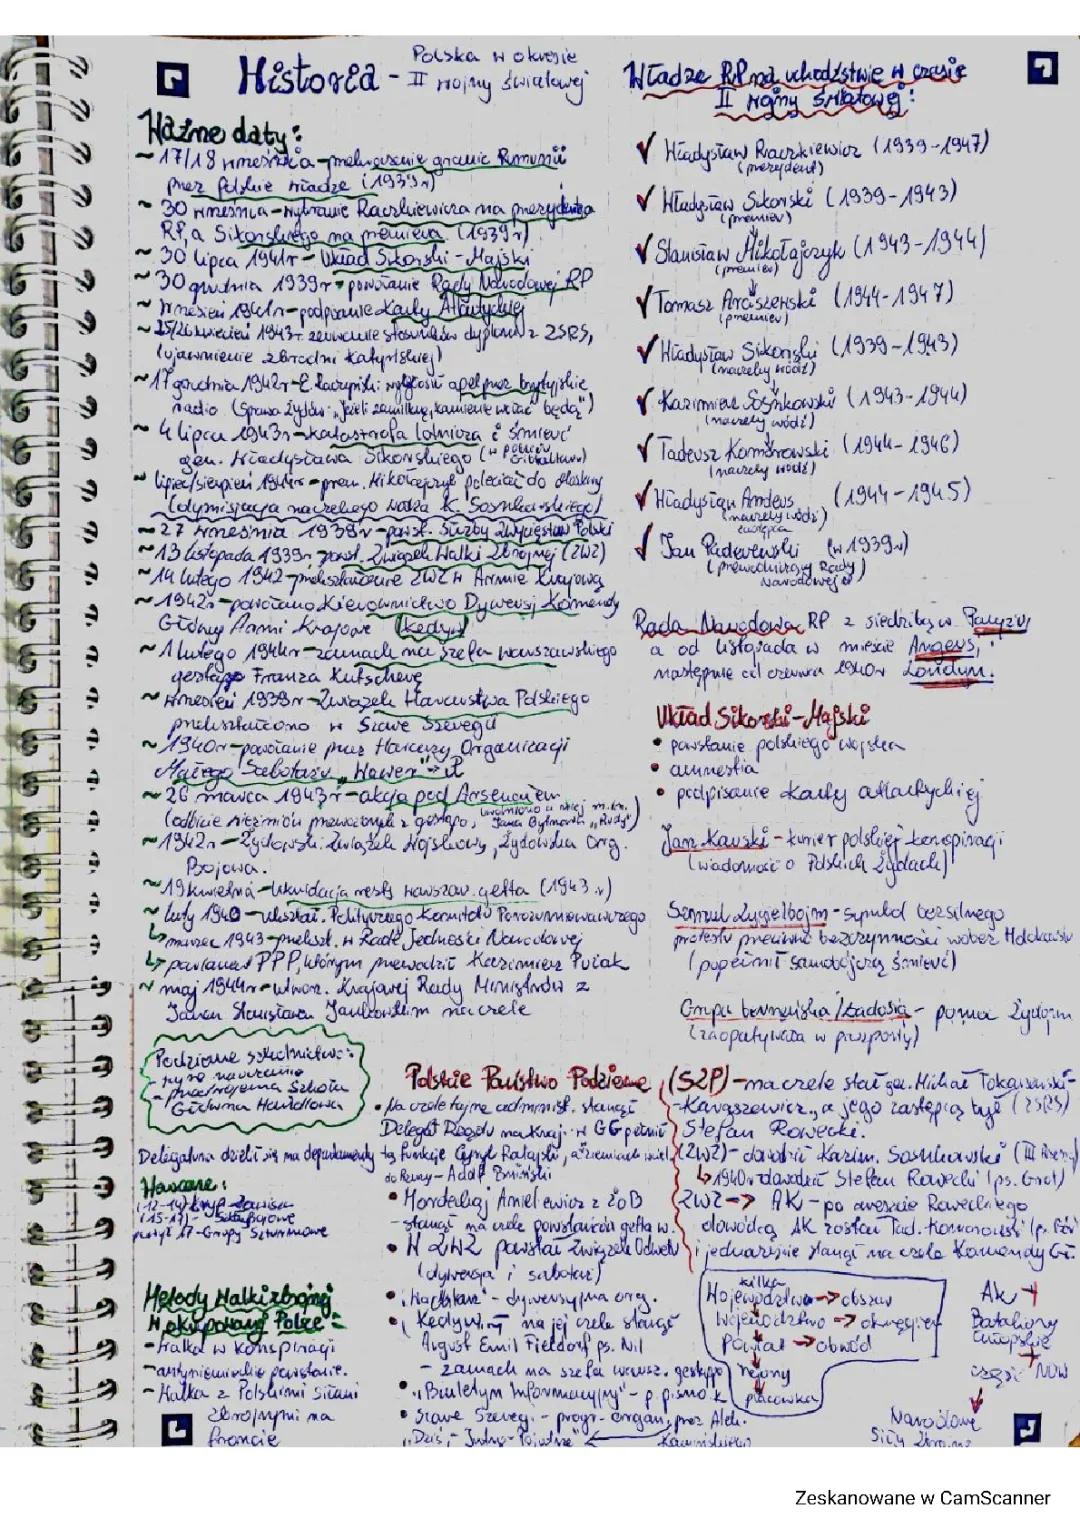 Historia - Polska w okresie
II wojny światowej
Ważne daty:
~ 17/18 września - przekroczenie granic Rumunii
przez polskie władze (1939r)
~ 30 września - wybranie Raczkiewicza na prezydenta
RP, a Sikorskiego na premiera (1939r)
~ 30 lipca 1941r - Układ Sikorski - Majski
~ 30 grudnia 1939r - powołanie Rady Narodowej RP
~ wrzesień 1941r - podpisanie Karty Atlantyckiej
~ 25/26 kwiecień 1943r zerwanie stosunków dyplom. z ZSRS,
(ujawnienie zbrodni katyńskiej)
~ 17 grudnia 1942r - E. Raczyński wygłosił apel przez brytyjskie
radio (Sprawa Żydów: "Jeżeli zamilkną, kamienie wołać będą")
~ 4 lipca 1943r - katastrofa lotnicza i śmierć
gen. Władysława Sikorskiego (w pobliżu Gibraltaru)
~ lipiec/sierpień 1944r - prem. Mikołajczyk poleciał do Moskwy
(dymisja naczelnego wodza K. Sosnkowskiego)
~ 27 września 1939r - powst. Służby Zwycięstwu Polski
~ 13 listopada 1939r, powst. Związek Walki Zbrojnej (ZWZ)
~ 14 lutego 1942 - przekształcenie ZWZ w Armie Krajową
~ 1942r - powołano Kierownictwo Dywersji Komendy
Głównej Armii Krajowe (Kedyw)
~ 1 lutego 1944r - zamach na szefa warszawskiego
gestapo Franza Kutscherę
~ wrzesień 1939r - Związek Harcerstwa Polskiego
przekształcono w Szare Szeregi
~ 1940r - powołanie przez Harcerzy Organizacji
Małego Sabotażu "Wawer"
~ 26 marca 1943r - akcja pod Arsenałem
(odbicie więźniów przewożonych z gestapo, uwolniono w niej m.in. Jana Bytnara "Rudy")
~ 1942r - Żydowski Związek Wojskowy, Żydowska Org.
Bojowa.
~ 19 kwietnia - likwidacja reszty warszaw. getta (1943r)
~ luty 1940 - ukształ. Politycznego Komitetu Porozumiewawczego
↳ marzec 1943 - przekszt. w Radę Jedności Narodowej
↳ parlament PPP, którym przewodził Kazimierz Pużak
~ maj 1944r - utworz. Krajowej Rady Ministrów z
Janem Stanisławem Jankowskim na czele
Podziemne szkolnictwo:
- tajne nauczanie
- Szkoła
Główna Handlowa
Delegatura dzieli się na departamenty
Harcerze:
(12-14) - Zawisza
(15-17) -
powyż 17 - Grupy Szturmowe
Metody walki zbrojnej
w okupowanej Polsce:
- walka w konspiracji
- antyniemieckie powstanie.
- Walka z Polskimi siłami
zbrojnymi na
froncie
Władze RP na uchodźstwie w czasie
II wojny światowej:
✓ Władysław Raczkiewicz (1939-1947)
(prezydent)
✓ Władysław Sikorski (1939-1943)
(premier)
✓ Stanisław Mikołajczyk (1943-1944)
(premier)
✓ Tomasz Arciszewski (1944-1947)
(premier)
✓ Władysław Sikorski (1939-1943)
(naczelny wódz)
✓ Kazimierz Sosnkowski (1943-1944)
(naczelny wódz)
✓ Tadeusz Komorowski (1944-1946)
(naczelny wódz)
✓ Władysław Anders (1944-1945)
(naczelny wódz)
zastępca
✓ Jan Paderewski (w 1939r)
(przewodniczący Rady
Narodowej)
Rada Narodowa RP z siedzibą w Paryżu,
a od listopada w mieście Angers,
następnie od czerwca 1940r Londyn.
Układ Sikorski - Majski
• powstanie polskiego wojska
• amnestia
• podpisanie Karty atlantyckiej
Jan Karski - kurier polskiej konspiracji
(wiadomość o Polskich Żydach)
Szmul Zygielbojm - symbol bezsilnego
protestu przeciwko bezczynności wobec Holokaustu
(popełnił samobójczą śmierć)
Grupa berneńska / Ładosia - pomoc Żydom
(zaopatrywała w paszporty)
Polskie Państwo Podziemne
• Na czele tajnej administ. stanął
Delegat Rządu na Kraj. W GG pełnił
tę funkcje Cyryl Ratajski, a ziemiach wciel.
do Rzeszy - Adolf Bniński
• Mordechaj Anielewicz z ŻOB
- stanął na czele powstańców getta w.
• W ZWZ powstał Związek Odwetu
(dywersja i sabotaż)
• "Wachlarz" - dywersyjna org.
• Kedyw na jej czele stanął
August Emil Fieldorf ps. Nil
- zamach na szefa warsz. gestapo
• "Biuletyn Informacyjny" - p. pismo k
• Szare Szeregi - progr. organ. przez Alek.
"Dziś - Jutro - Pojutrze" Kamińskiego
(SZP) - na czele stał gen. Michał Tokarzewski-
-Karaszewicz, a jego zastępcą był (ZSRS)
Stefan Rowecki.
(ZWZ) - dowódcą Kazim. Sosnkowski (III Rzesza)
↳ 1940r dowódca Stefan Rowecki (ps. Grot)
ZWZ → AK - po areszcie Roweckiego
dowódcą AK został Tad. Komorowski (p. Bór
i jednocześnie stanął na czele Komendy Gł.
kilka
Województwa → obszar
Województwo → okręgiem
Powiat → obwód
rejony
placówka
AK +
Bataliony
Chłopskie
+
część NOW
Narodowe
Siły Zbrojne
Zeskanowane w CamScanner